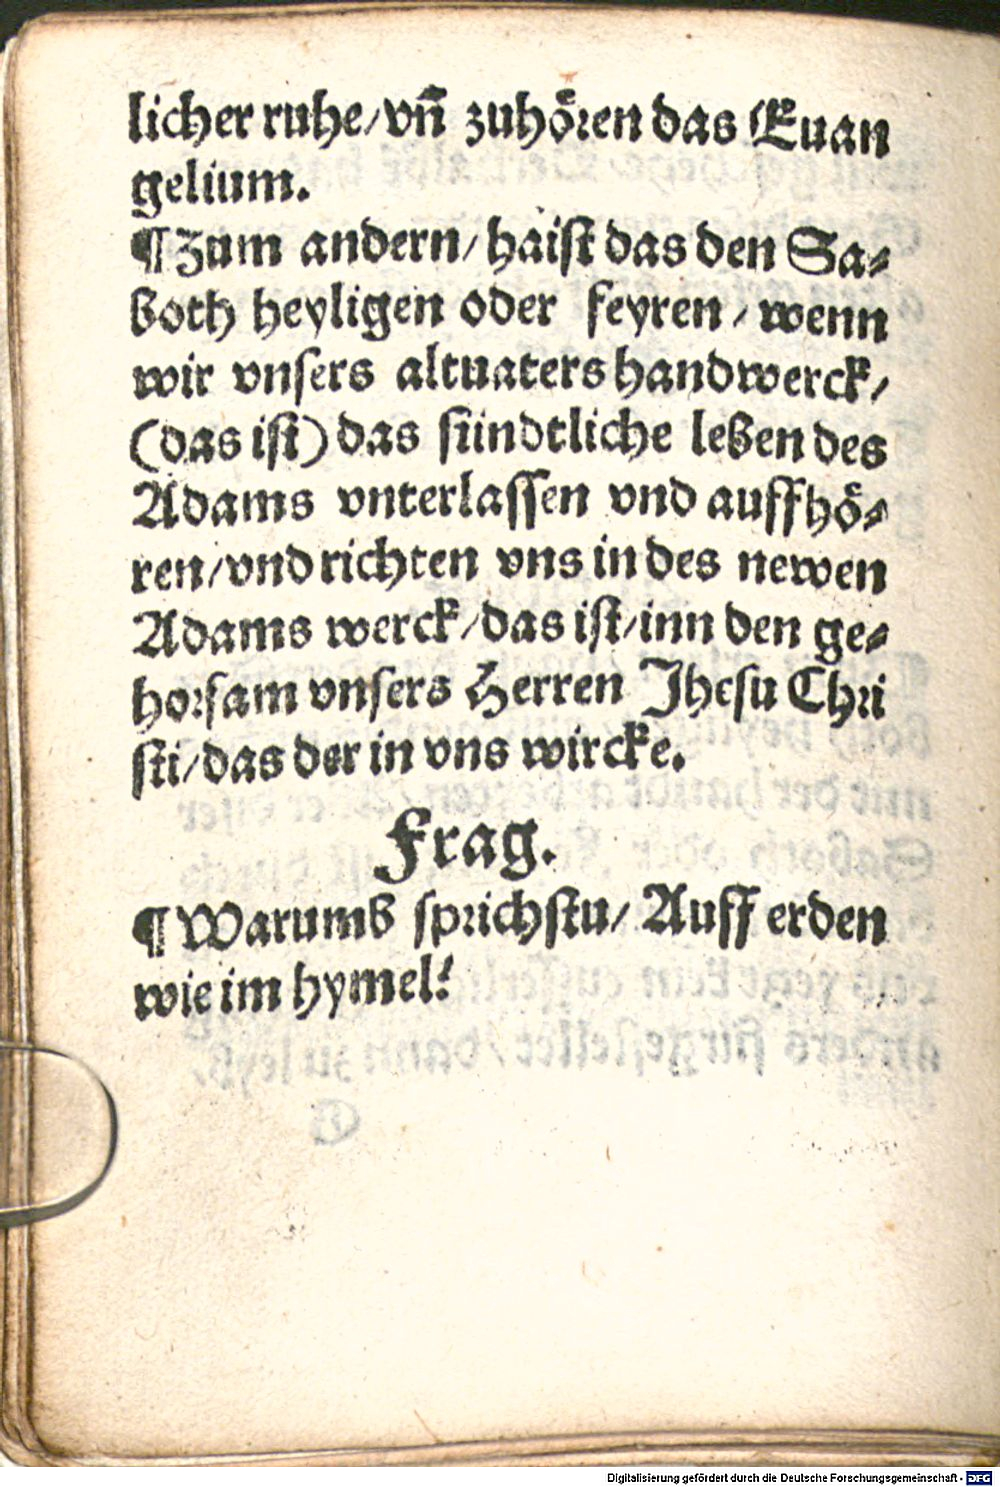 licher ruhe/vñ zuhoͤren das Euan
gelium.
¶ Zum andern/haist das den Sa⸗
both heyligen oder feyren/wenn
wir vnsers altuaters handwerck/
(das ist) das sündtliche leben des
Adams vnterlassen vnd auffhoͤ⸗
ren/vnd richten vns in des newen
Adams werck/das ist/inn den ge⸗
horsam vnsers Herren Jhesu Chri
sti/das der in vns wircke.
Frag.
¶ Warumb sprichstu/Auff erden
wie im hymel?
Digitalisierung gefördert durch die Deutsche Forschungsgemeinschaft - DFG